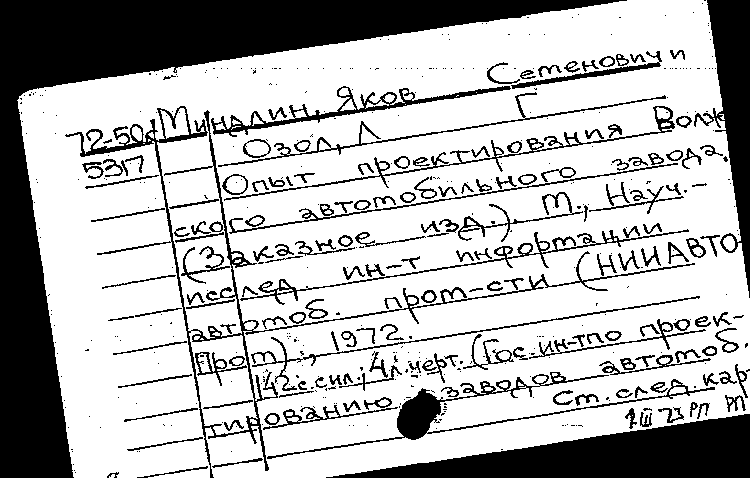 72-50к Миндлин, Яков Семенович и
5317 Озол, Л Г
Опыт проектирования Волж
ского автомобильного завода.
(Заказное изд.). М., Науч.-
исслед. ин-т информации
автомоб. пром-сти (НИИАВТО-
пром), 1972.
142 с. с ил.; 4 л. черт. (Гос. ин-т по проек-
тированию заводов автомоб.
См. след. кар-
1 III 73 РП РП